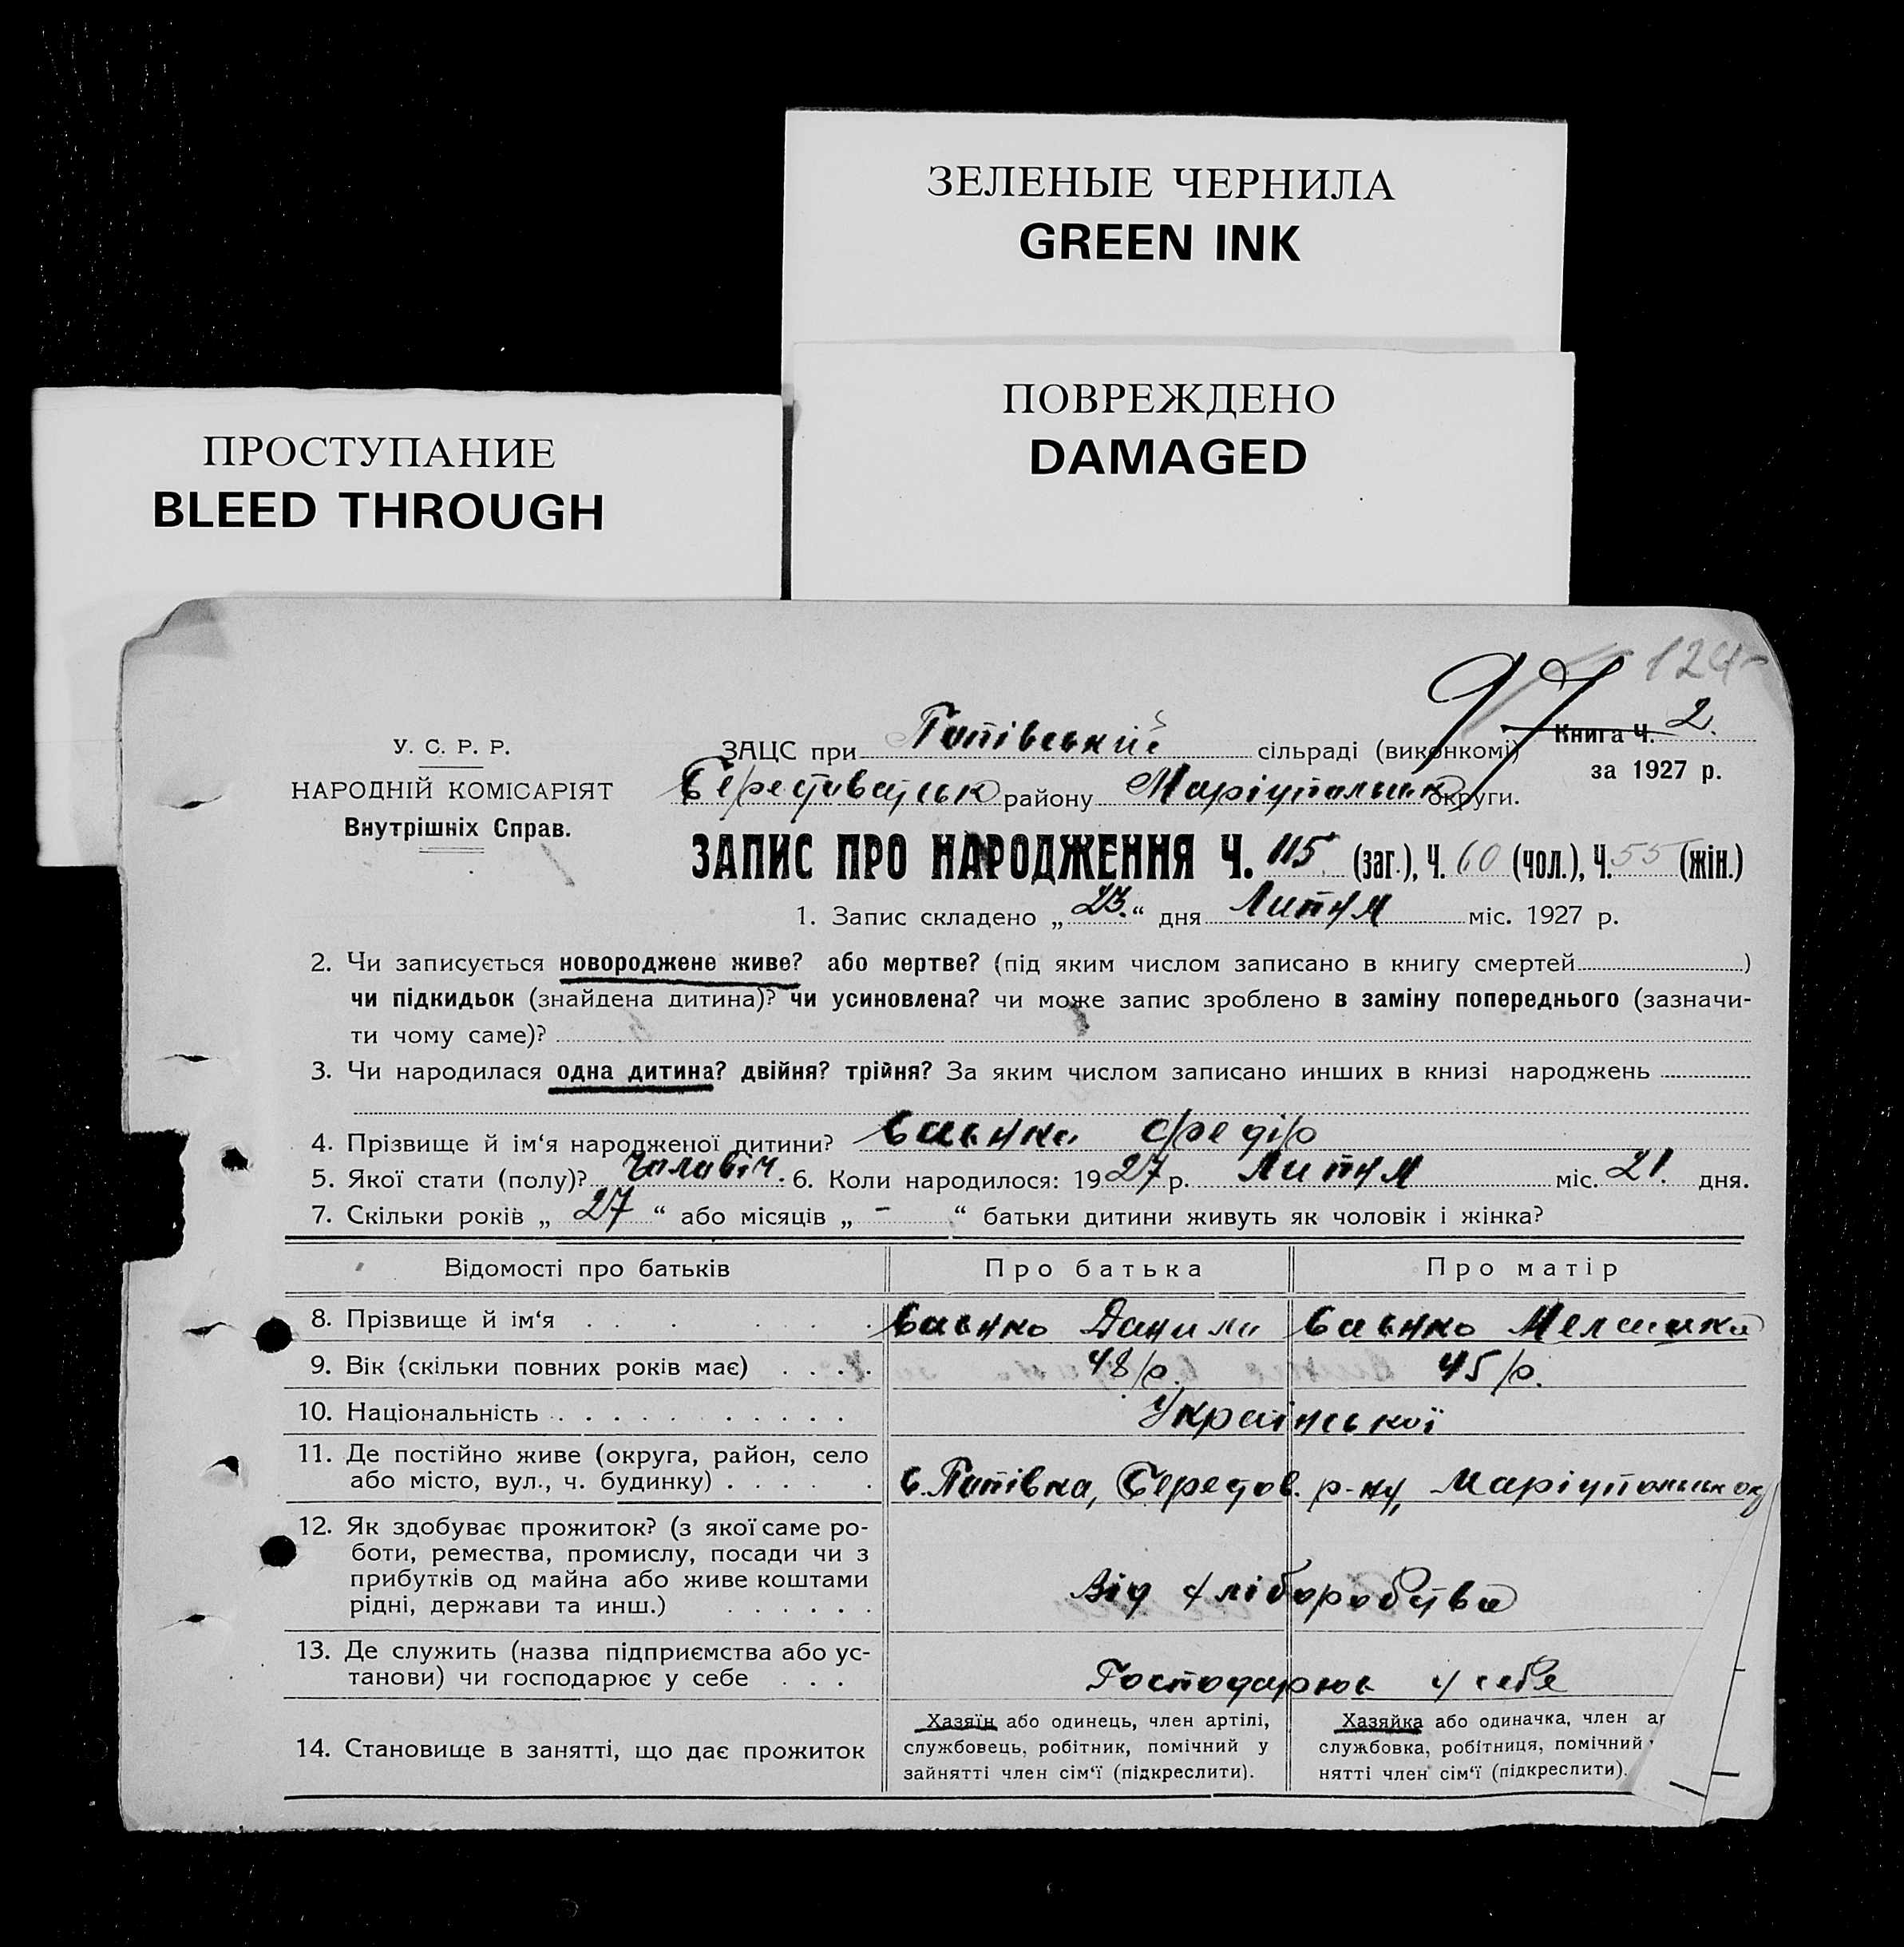 ЗЕЛЕНЫЕ ЧЕРНИЛА
GREEN INK
ПОВРЕЖДЕНО
DAMAGED
ПРОСТУПАНИЕ
BLEED THROUGH
97 124
Книга Ч. 2.
за 1927 р.
У. С. Р. Р.
НАРОДНІЙ КОМІСАРІЯТ
Внутрішніх Справ.
ЗАЦС при сільраді (виконкомі)
району Маріупольськ округи.
ЗАПИС ПРО НАРОДЖЕННЯ Ч. 115 (заг.), Ч. 60 (чол.), Ч. 55 (жін.)
1. Запис складено „23.“ дня Лютня міс. 1927 р.
2. Чи записується новороджене живе? або мертве? (під яким числом записано в книгу смертей )
чи підкидьок (знайдена дитина)? чи усиновлена? чи може запис зроблено в заміну попереднього (зазначи-
ти чому саме)?
3. Чи народилася одна дитина? двійня? трійня? За яким числом записано инших в книзі народжень
4. Прізвище й ім‘я народженої дитини? Федір
5. Якої стати (полу)? чоловіч. 6. Коли народилося: 1927 р. Лютня міс. 21. дня.
7. Скільки років „ 27 “ або місяців „ - “ батьки дитини живуть як чоловік і жінка?
Відомості про батьків Про батька Про матір
8. Прізвище й ім‘я Данило
9. Вік (скільки повних років має) 48 р. 45 р.
10. Національність Української
11. Де постійно живе (округа, район, село
або місто, вул., ч. будинку) р-ну, Маріупольськ ок
12. Як здобуває прожиток? (з якої саме ро-
боти, ремества, промислу, посади чи з
прибутків од майна або живе коштами
рідні, держави та инш.) Від хліборобства
13. Де служить (назва підприємства або ус-
танови) чи господарює у себе Господарює у себе
14. Становище в занятті, що дає прожиток
Хазяїн або одинець, член артілі,
службовець, робітник, помічний у
зайнятті член сім‘ї (підкреслити).
Хазяйка або одиначка, член ар
службовка, робітниця, помічний
нятті член сім‘ї (підкреслити).